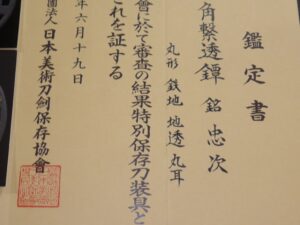 鑑定書
角繋透鐔 銘 忠次
丸形 鉄地 地透 丸耳
會に於て審査の結果特別保存刀装具と
これを証する
年六月十九日
團法人日本美術刀劍保存協會